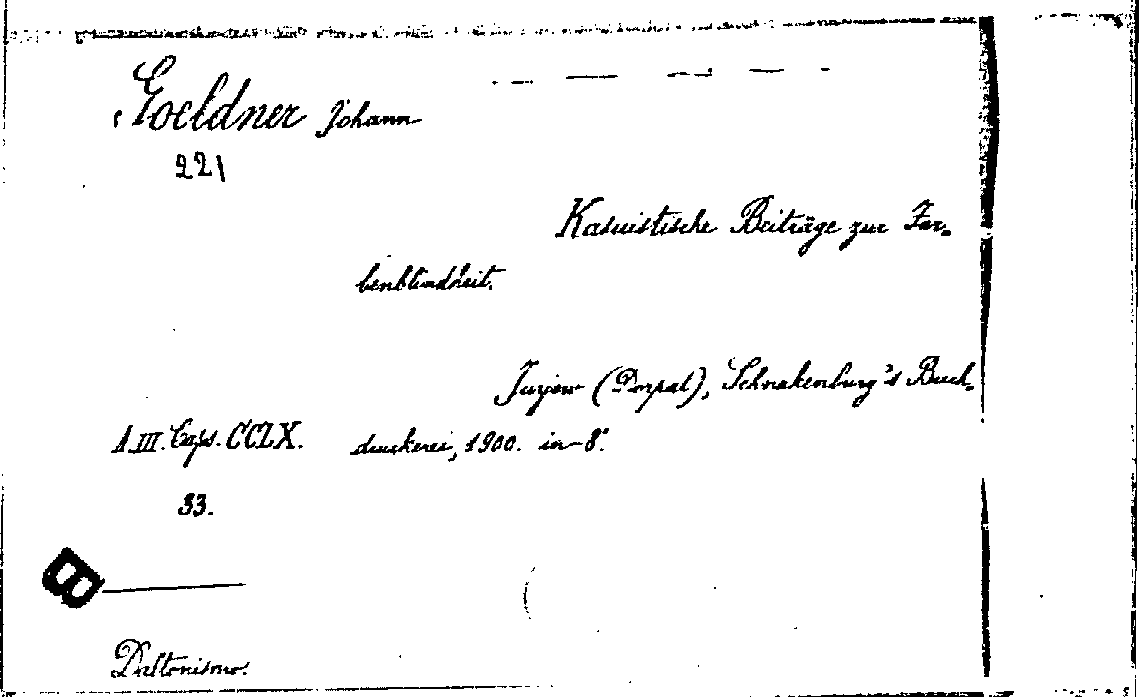 Goeldner Johann
221
Kasuistische Beiträge zur Far-
benblindheit.
Jurjew (Dorpat), Schnakenburg's Buch-
A.III. Caps. CCLX. druckerei, 1900. in-8°.
33.
B
Daltonismo.